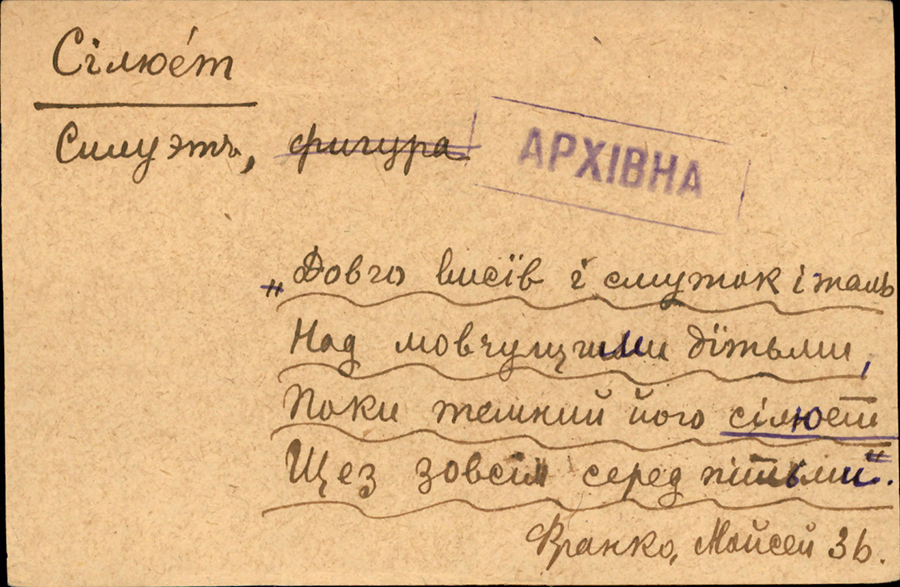 Сілюе́т
Силуэтъ, фигура
АРХІВНА
„Довго висїв ї смуток і жаль
Над мовчущими дїтьми,
Поки темний його сілюет
Щез зовсїм серед пітьми".
Франко, Мойсей 36.